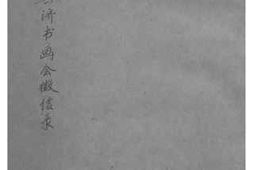 济书画会徵信录